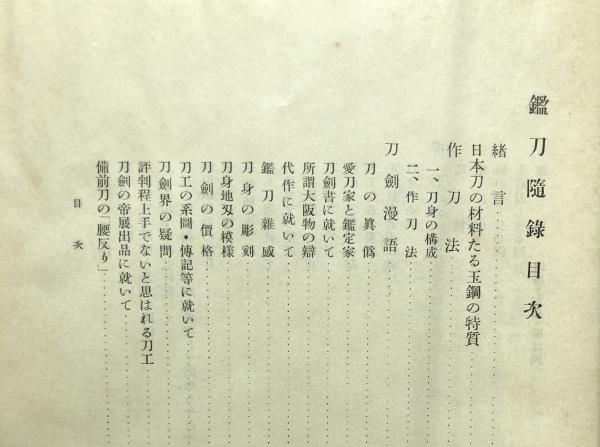 鑑刀隨錄目次
緒言
日本刀の材料たる玉鋼の特質
作刀法
一、刀身の構成
二、作刀法
刀劍漫語
刀の眞僞
愛刀家と鑑定家
刀劍書に就いて
所謂大阪物の辯
代作に就いて
鑑刀雜感
刀身の彫刻
刀身地刄の模樣
刀劍の價格
刀工の系圖・傳記等に就いて
刀劍界の疑問
評判程上手でないと思はれる刀工
刀劍の帝展出品に就いて
備前刀の「腰反り」
目次